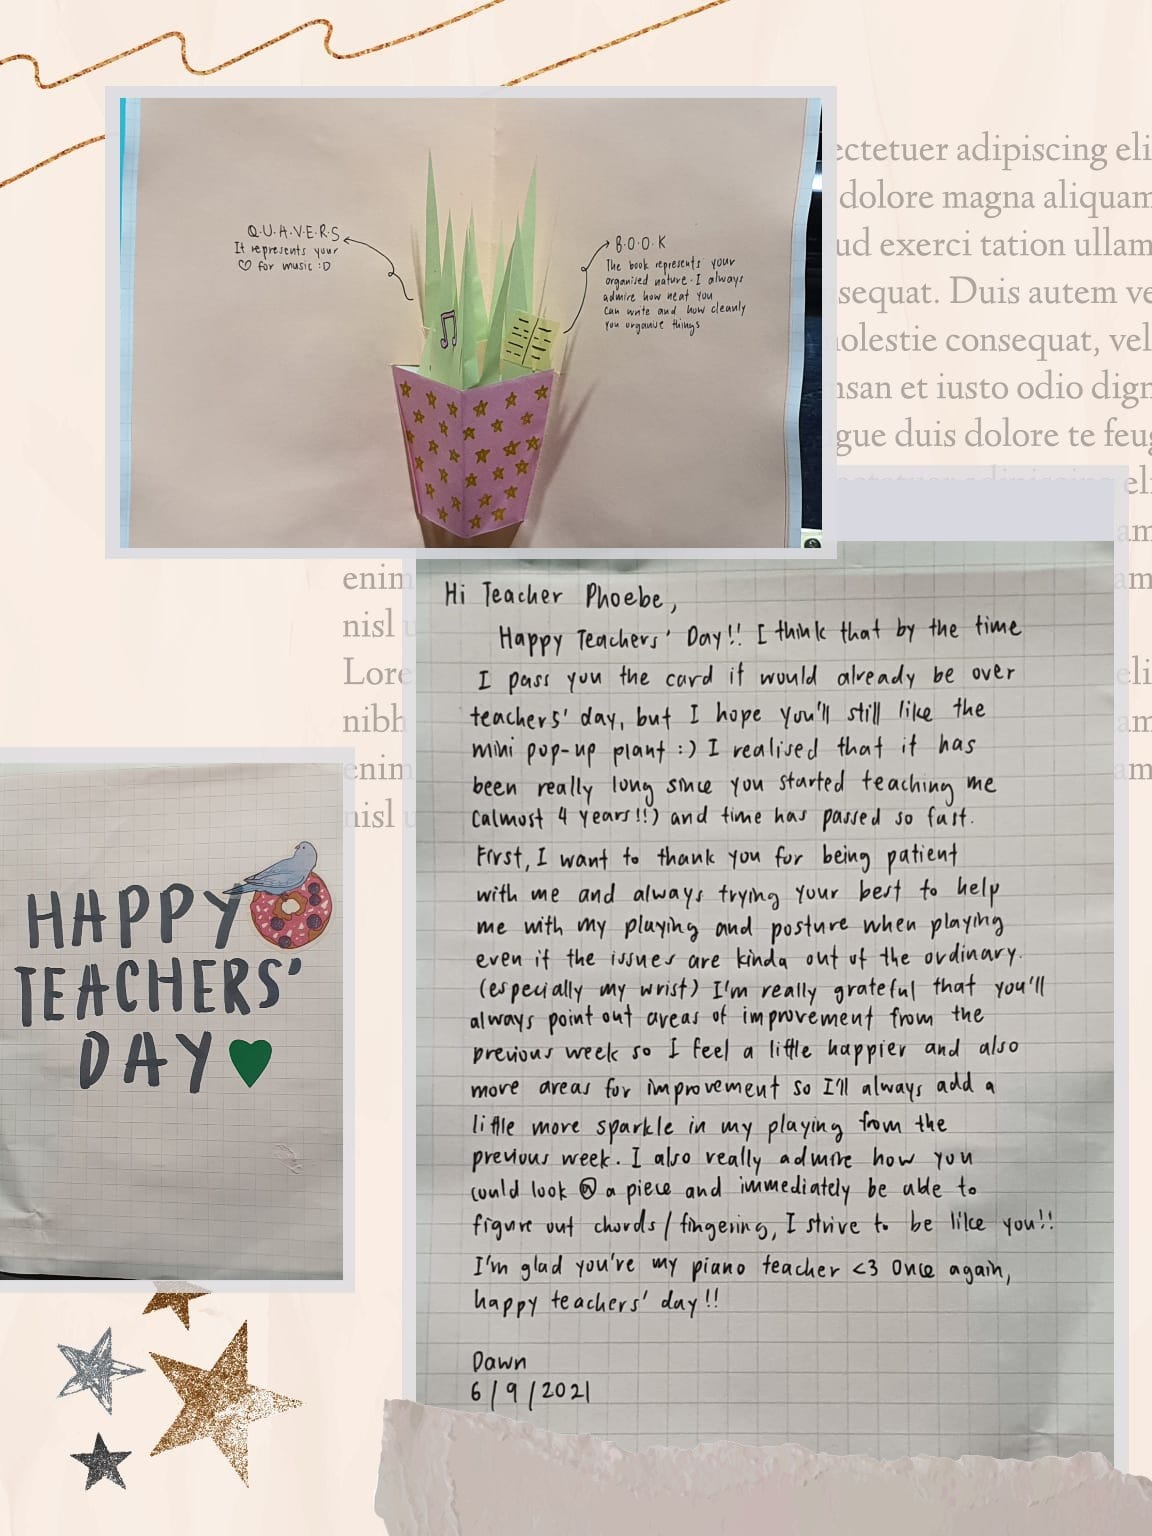 ectetuer adipiscing eli
dolore magna aliquam
ud exerci tation ullam
sequat. Duis autem ve
olestie consequat, vel
nsan et iusto odio dign
gue duis dolore te feug
Q.U.A.V.E.R.S
It represents your
♡ for music :D
B.O.O.K
The book represents your
organised nature. I always
admire how neat you
can write and how cleanly
you organise things
eli
am
enim
nisl u
Lore
nibh
enim
nisl u
am
eli
am
am
Hi Teacher Phoebe,
Happy Teachers' Day!! I think that by the time
I pass you the card it would already be over
teachers' day, but I hope you'll still like the
mini pop-up plant :) I realised that it has
been really long since you started teaching me
(almost 4 years!!) and time has passed so fast.
First, I want to thank you for being patient
with me and always trying your best to help
me with my playing and posture when playing
even if the issues are kinda out of the ordinary.
(especially my wrist) I'm really grateful that you'll
always point out areas of improvement from the
previous week so I feel a little happier and also
more areas for improvement so I'll always add a
little more sparkle in my playing from the
previous week. I also really admire how you
could look @ a piece and immediately be able to
figure out chords/fingering, I strive to be like you!!
I'm glad you're my piano teacher <3 Once again,
happy teachers' day!!
Dawn
6/9/2021
HAPPY
TEACHERS'
DAY